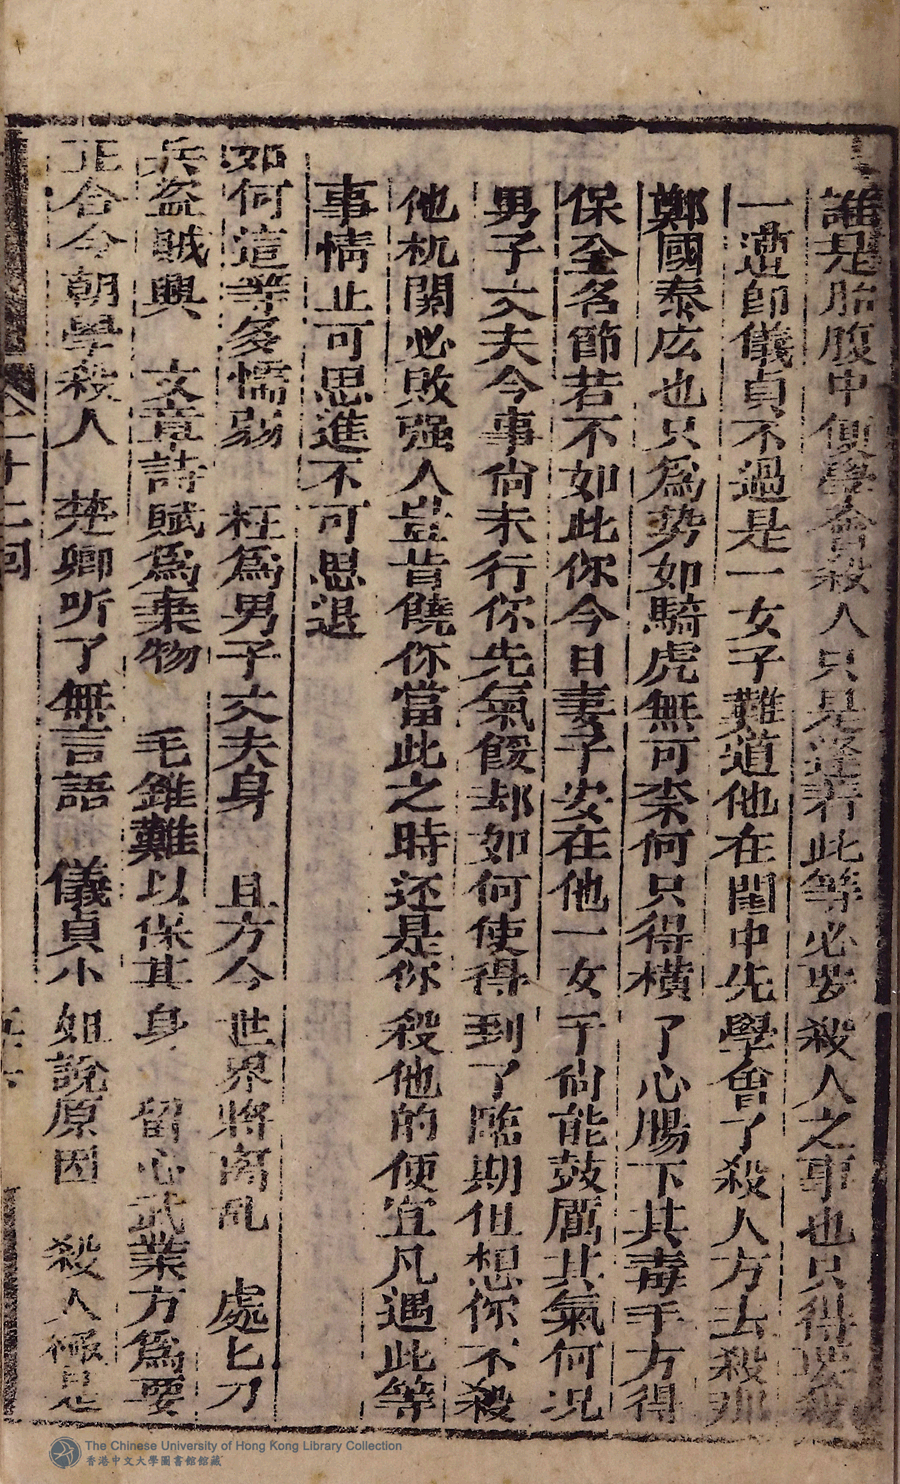 誰是胎腹中便學會殺人只是逢着此等必要殺人之事也只得要殺
一遭即儀貞不過是一女子難道他在閨中先學會了殺人方去殺那
鄭國泰庅也只爲势如騎虎無可柰何只得横了心腸下其毒手方得
保全名節若不如此你今日妻子安在他一女子尙能鼓厲其氣何况
男子丈夫今事尙未行你先氣餒却如何使得到了臨期但想你不殺
他机関必敗强人豈肯饒你當此之時还是你殺他的便宜凡遇此等
事情止可思進不可思退
如何這等多懦弱 枉爲男子丈夫身 且方今世界將离乱 處匕刀
兵盗賊興 文章詩賦爲棄物 毛錐難以保其身 留心武業方爲要
正合今朝學殺人 楚卿听了無言語 儀貞小姐說原因 殺人極是
二十二囘
The Chinese University of Hong Kong Library Collection
香港中文大學圖書館館藏